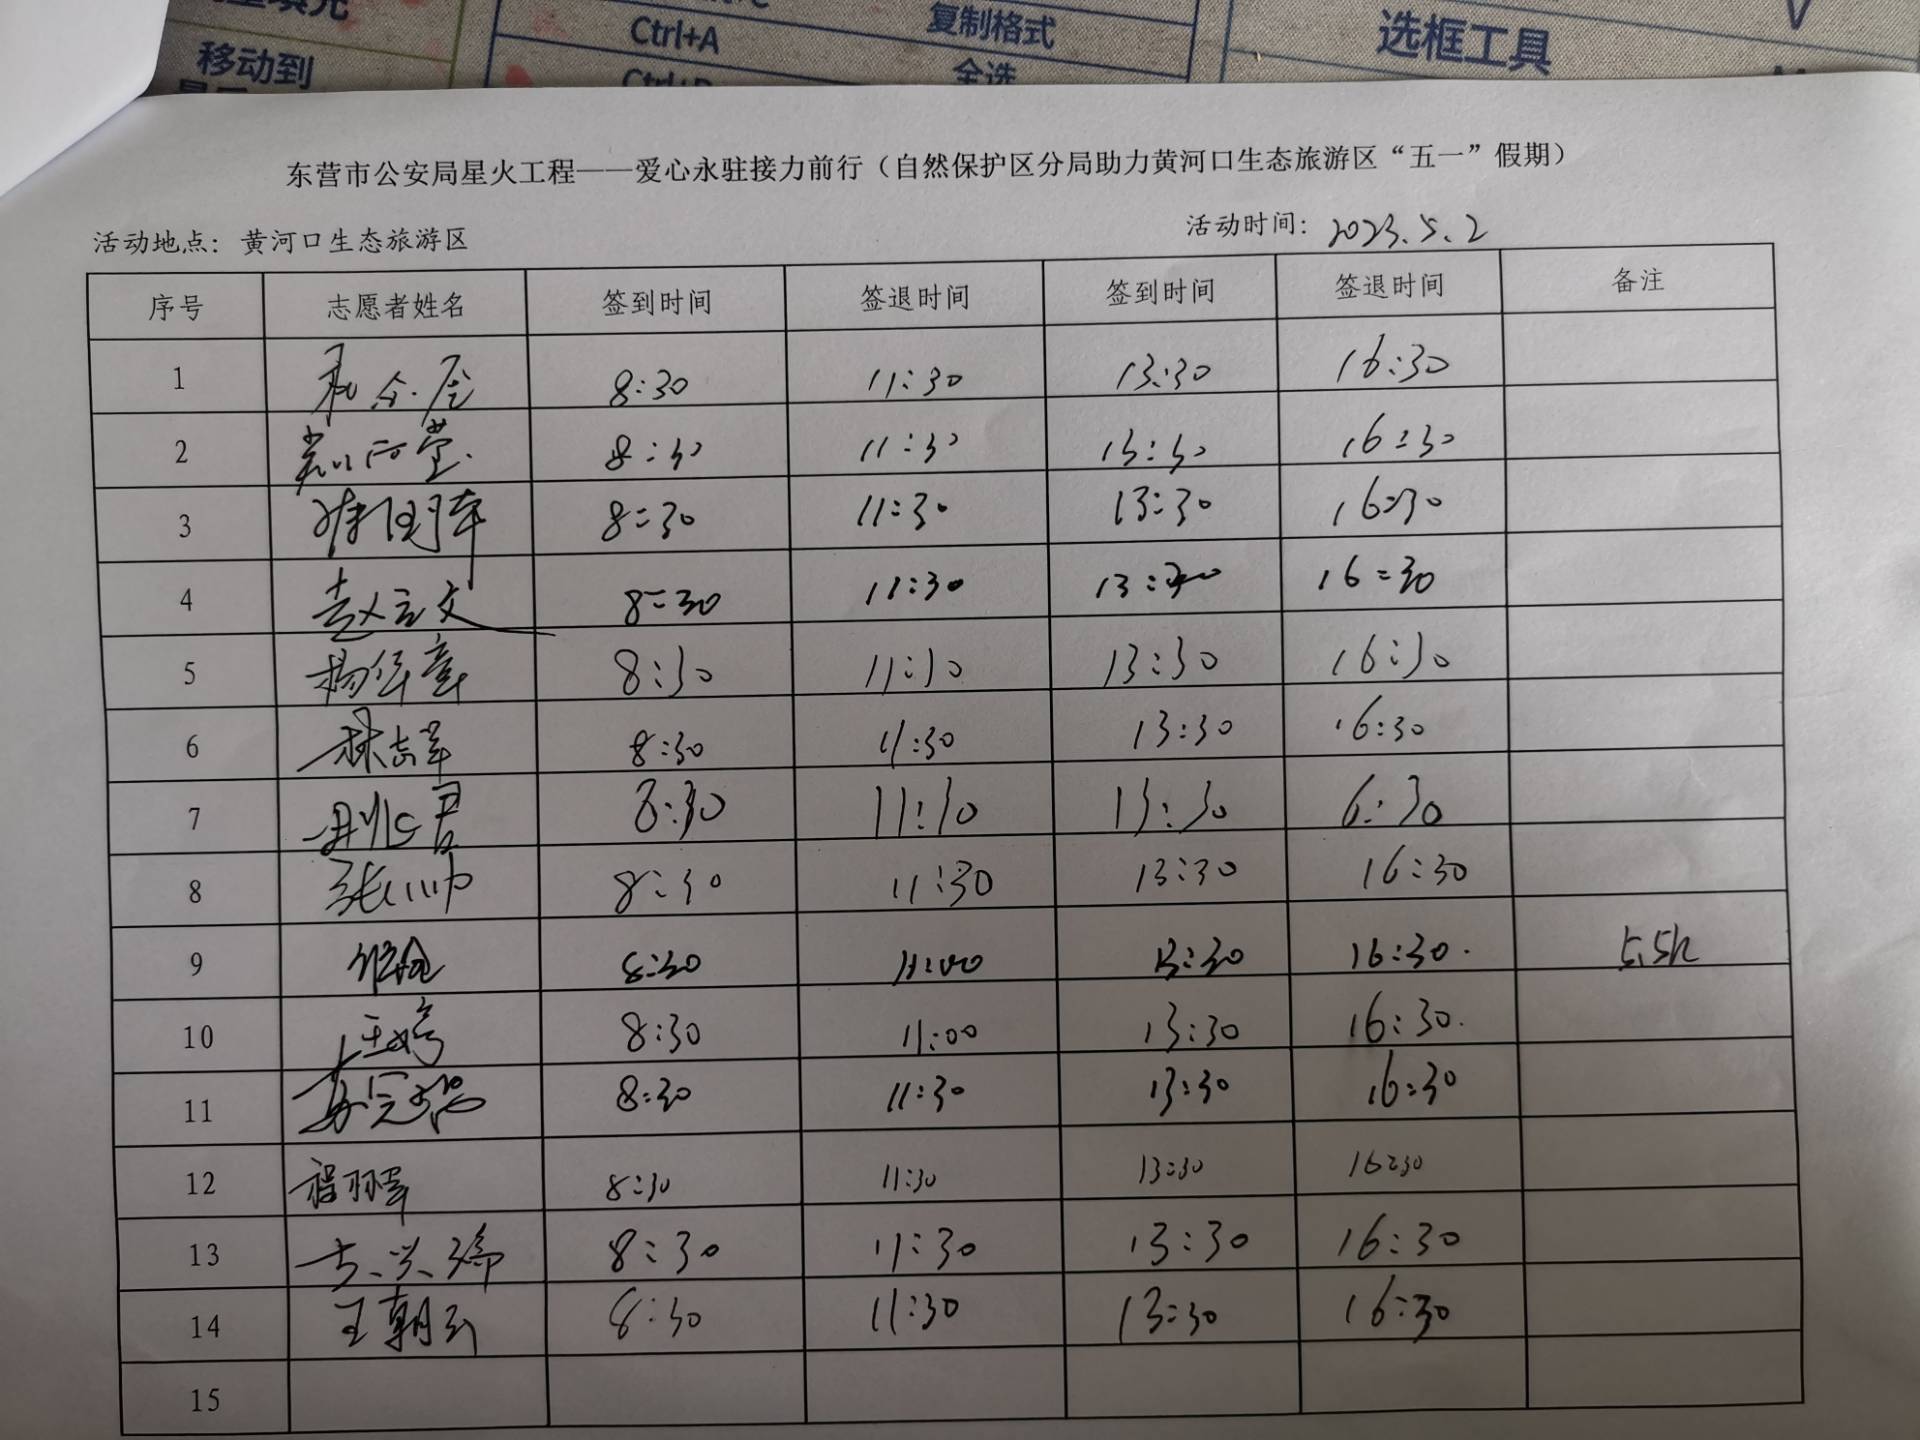 填充
移动到
Ctrl+A
复制格式
全选
选框工具
V
东营市公安局星火工程——爱心永驻接力前行（自然保护区分局助力黄河口生态旅游区“五一”假期）
活动地点：黄河口生态旅游区 活动时间：2023.5.2
序号 志愿者姓名 签到时间 签退时间 签到时间 签退时间 备注
1 8:30 11:30 13:30 16:30
2 8:30 11:30 13:30 16:30
3 8:30 11:30 13:30 16:30
4 赵立文 8:30 11:30 13:30 16:30
5 杨华章 8:30 11:30 13:30 16:30
6 林志军 8:30 11:30 13:30 16:30
7 8:30 11:30 13:30 6:30
8 张帅 8:30 11:30 13:30 16:30
9 8:30 11:00 13:30 16:30. 5.5h
10 8:30 11:00 13:30 16:30.
11 8:30 11:30 13:30 16:30
12 程翔军 8:30 11:30 13:30 16:30
13 8:30 11:30 13:30 16:30
14 王朝云 8:30 11:30 13:30 16:30
15